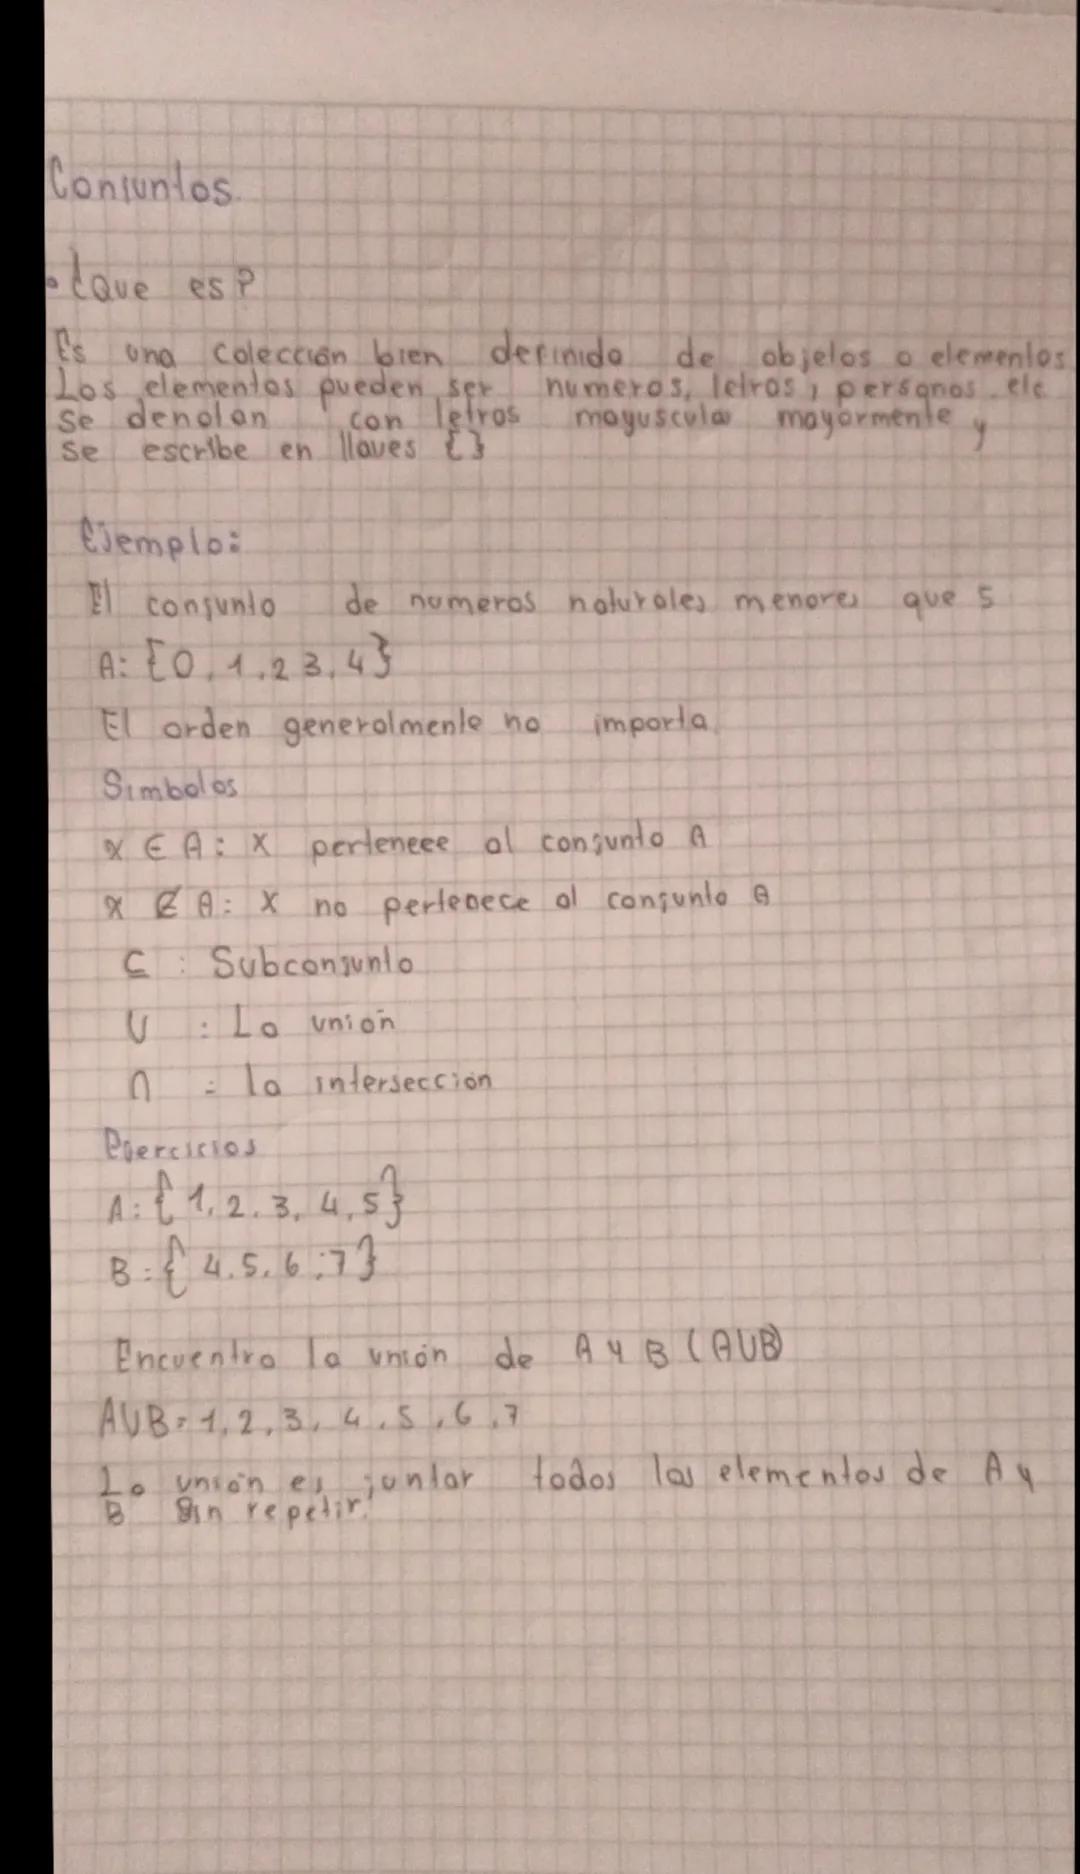 Conjuntos.
• ¿Que es?
Es una colección bien definida de objetos o elementos
Los elementos pueden ser numeros, letras, personas. etc
se denotan con letras mayusculas mayormente y
se escribe en llaves { }
Ejemplo:
El conjunto de numeros naturales menores que 5
A: {0, 1, 2 3, 4}
El orden generalmente no importa.
Simbolos
x ∈ A: x pertenece al conjunto A
x ∉ A: x no pertenece al conjunto A
⊆ : Subconjunto
U : La unión
∩ : la intersección
Ejercicios
A: {1, 2. 3, 4, 5}
B: {4. 5. 6 ; 7}
Encuentra la unión de A y B (AUB)
AUB = 1, 2, 3, 4, 5, 6, 7
La unión es juntar todos los elementos de A y
B sin repetir.